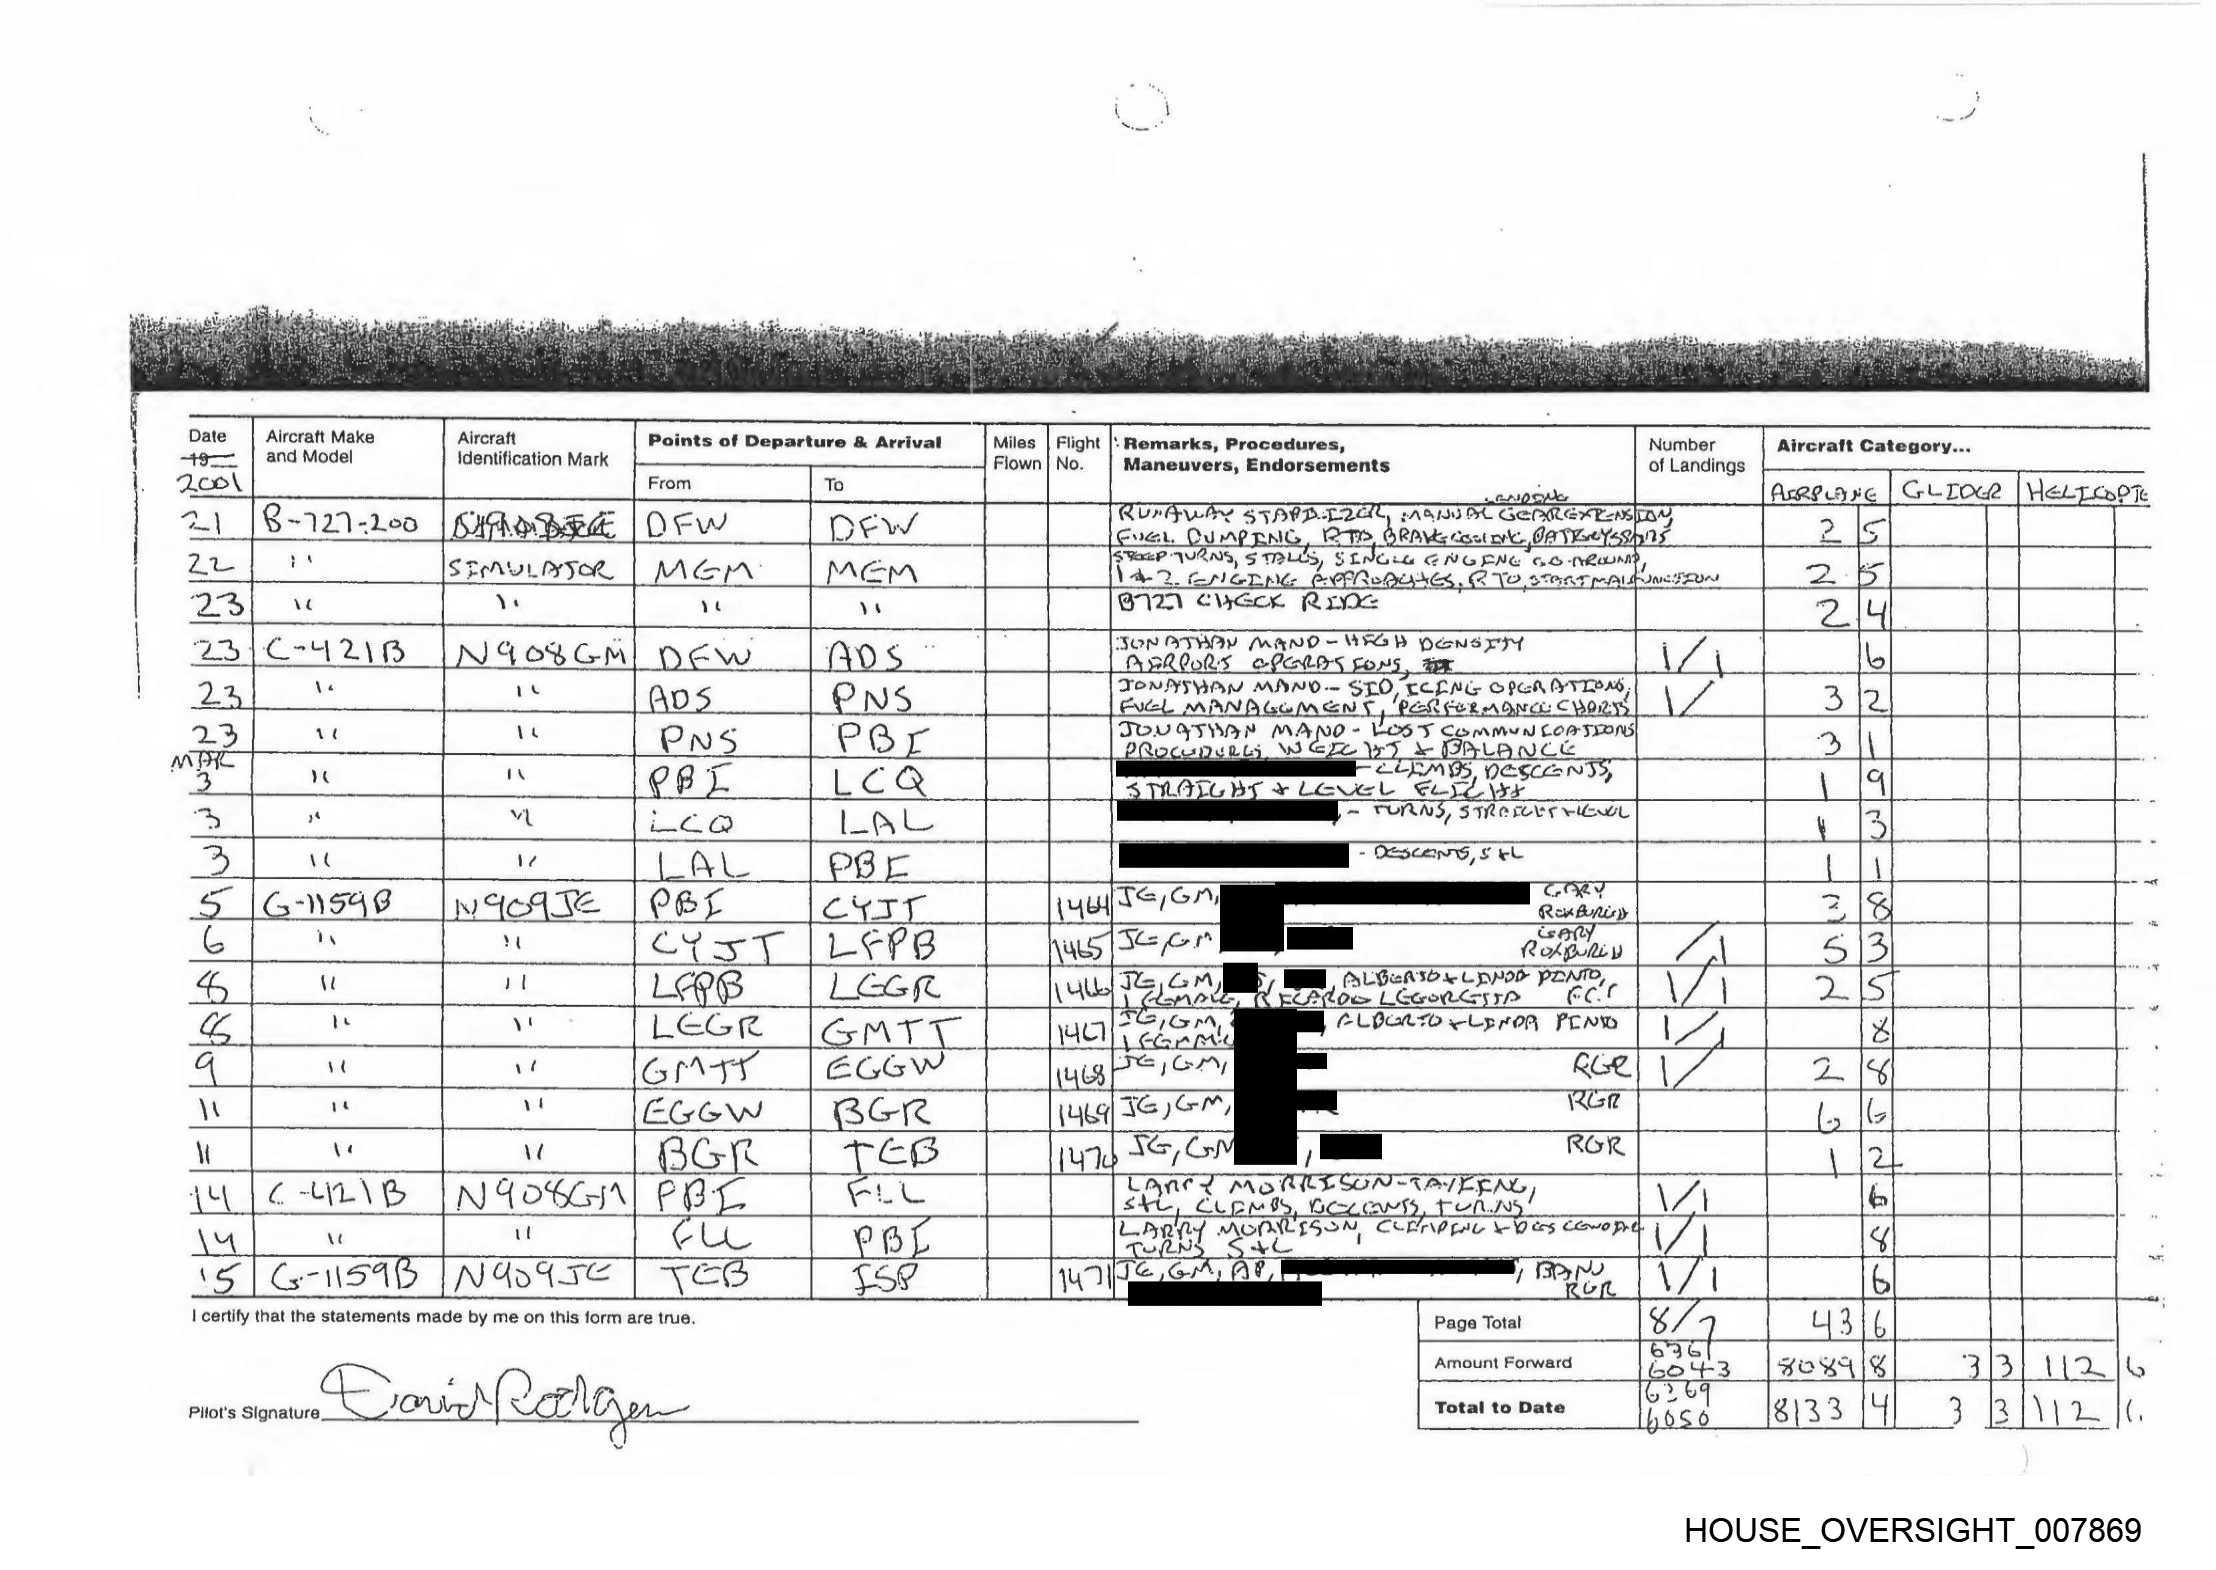 Date Aircraft Make and Model Aircraft Identification Mark Points of Departure & Arrival Miles Flown Flight No. Remarks, Procedures, Maneuvers, Endorsements Number of Landings Aircraft Category...
19
2001 From To AIRPLANE GLIDER HELICOPTE
LANDING
21 B-727-200 DFW DFW RUNAWAY STABILIZER, MANUAL GEAR EXTENSION, 2 5
FUEL DUMPING, RTO, BRAKE COOLING,
22 " SIMULATOR MEM MEM STEEP TURNS, STALLS, SINGLE ENGINE GO-AROUND, 2 5
1 & 2 ENGINE APPROACHES, RTO, START MALFUNCTION
23 " " " " B727 CHECK RIDE 2 4
23 C-421B N908GM DFW ADS JONATHAN MANO - HIGH DENSITY 1/1 6
AIRPORT OPERATIONS,
23 " " ADS PNS JONATHAN MANO - SID, ICING OPERATIONS, 1/ 3 2
FUEL MANAGEMENT, PERFORMANCE CHARTS
23 " " PNS PBI JONATHAN MANO - LOST COMMUNICATIONS 3 1
PROCEDURES, WEIGHT & BALANCE
MAR
3 " " PBI LCQ - CLIMBS, DESCENTS, 1 9
STRAIGHT & LEVEL FLIGHT
3 " " LCQ LAL - TURNS, STRAIGHT & LEVEL 1 3
3 " " LAL PBI - DESCENTS, S&L 1 1
5 G-1159B N909JE PBI CYJT 1464 JE, GM, GARY 3 8
ROXBURGH
6 " " CYJT LFPB 1465 JE, GM GARY /1 5 3
ROXBURGH
8 " " LFPB LEGR 1466 JE, GM, ALBERTO & LINDA PINTO, 1/1 2 5
1 FEMALE, RICARDO LEGORETTA
8 " " LEGR GMTT 1467 JE, GM, ALBERTO & LINDA PINTO 1/1 8
1 FEMALE
9 " " GMTT EGGW 1468 JE, GM, RGR 1/ 2 8
11 " " EGGW BGR 1469 JE, GM, RGR 6 6
11 " " BGR TEB 1470 JE, GM , RGR 1 2
14 C-421B N908GM PBI FLL LARRY MORRISON - TAXIING, 1/1 6
S&L, CLIMBS, DESCENTS, TURNS
14 " " FLL PBI LARRY MORRISON, CLIMBING & DESCENDING 1/1 8
TURNS S&L
15 G-1159B N909JE TEB ISP 1471 JE, GM, AP, , BANU 1/1 6
RGR
I certify that the statements made by me on this form are true.
Page Total 8/7 43 6
Amount Forward 6361 6043 8089 8 3 3 112 6
Pilot's Signature David Rodgers
Total to Date 6369 6050 8133 4 3 3 112
HOUSE_OVERSIGHT_007869